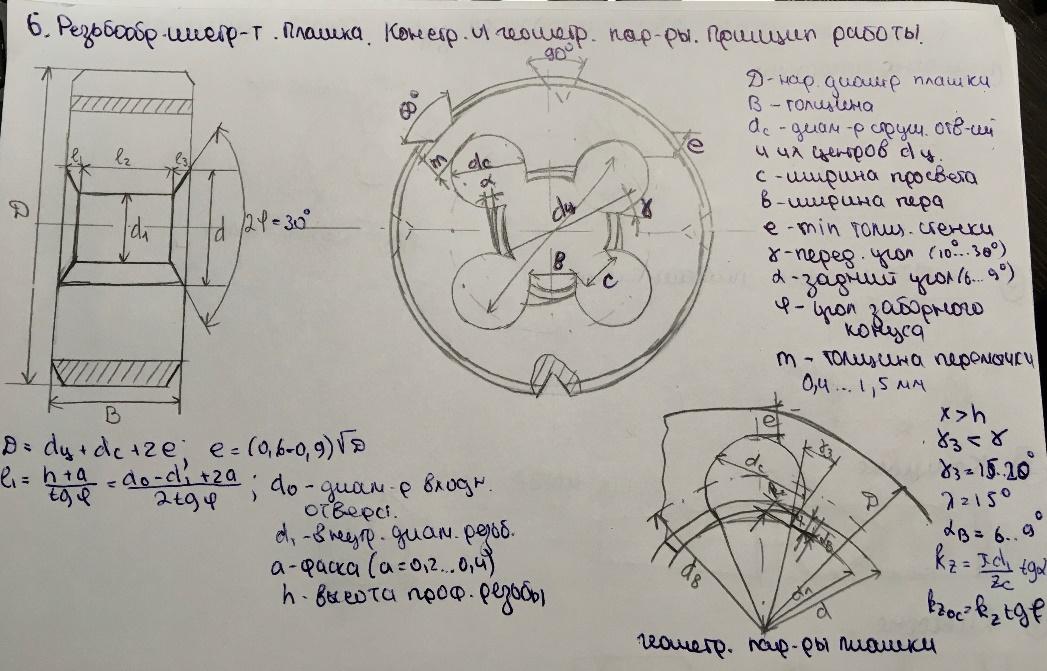 6. Резьбообр-инстр-т. Плашка. Констр. и геометр. пар-ры. Принцип работы.
90°
D - нар. диаметр плашки
B - толщина
dc - диам-р струж. отв-ий
и их центров dц.
c - ширина просвета
в - ширина пера
e - min толщ. стенки
γ - перед. угол (10°...30°)
α - задний угол (6...9°)
φ - угол заборного
конуса
m - толщина перемычки
0,4...1,5 мм
l₁ l₂ l₃
D
d₁
d
2φ=30°
B
m
dc
α
dц
γ
e
B
c
D = dц + dc + 2e; e = (0,6-0,9)√D
l₁ = h+a / tgφ = d0-d₁+2a / 2tgφ ; d0 - диам-р входн.
отверст.
d₁ - внутр. диам. резьб.
a - фаска (a=0,2...0,4)
h - высота проф. резьбы
e
dc
γ₃
D
dB
d₁
d
x > h
γ₃ < γ
γ₃ = 15..20°
λ = 15°
αB = 6..9°
kz = πd₁ / zc tgα
kzoc = kz tgφ
геометр. пар-ры плашки